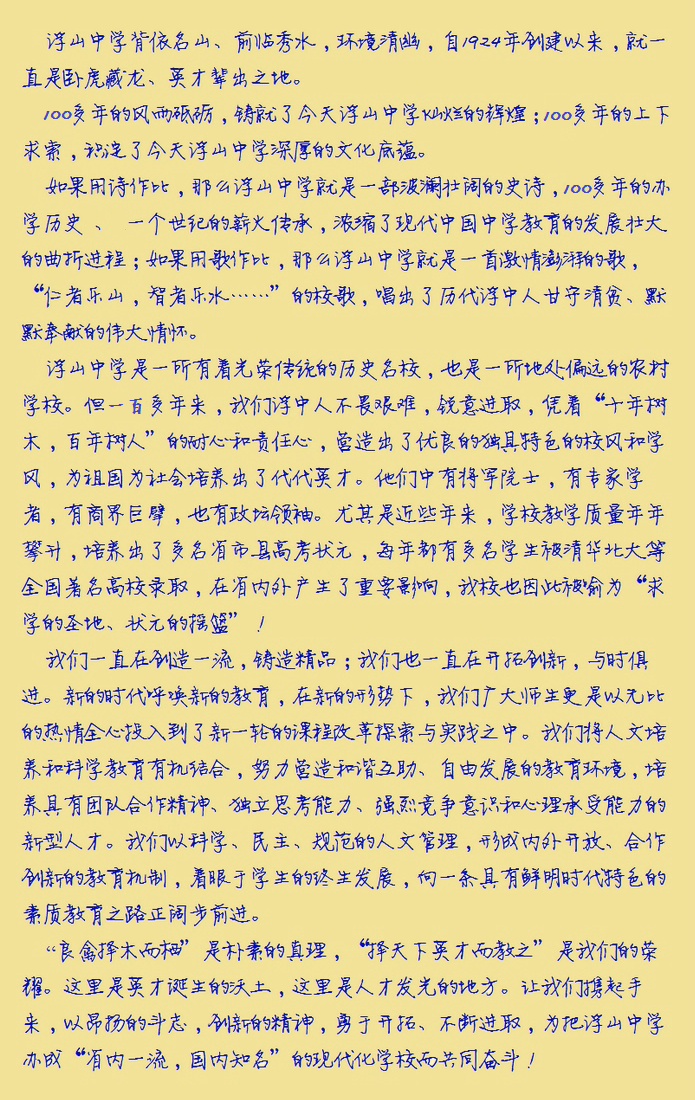 浮山中学背依名山、前临秀水，环境清幽，自1924年创建以来，就一
直是卧虎藏龙、英才辈出之地。
100多年的风雨砥砺，铸就了今天浮山中学灿烂的辉煌；100多年的上下
求索，积淀了今天浮山中学深厚的文化底蕴。
如果用诗作比，那么浮山中学就是一部波澜壮阔的史诗，100多年的办
学历史、 一个世纪的薪火传承，浓缩了现代中国中学教育的发展壮大
的曲折进程；如果用歌作比，那么浮山中学就是一首激情澎湃的歌，
“仁者乐山，智者乐水……”的校歌，唱出了历代浮中人甘守清贫、默
默奉献的伟大情怀。
浮山中学是一所有着光荣传统的历史名校，也是一所地处偏远的农村
学校。但一百多年来，我们浮中人不畏艰难，锐意进取，凭着“十年树
木，百年树人”的耐心和责任心，营造出了优良的独具特色的校风和学
风，为祖国为社会培养出了代代英才。他们中有将军院士，有专家学
者，有商界巨擘，也有政坛领袖。尤其是近些年来，学校教学质量年年
攀升，培养出了多名省市县高考状元，每年都有多名学生被清华北大等
全国著名高校录取，在省内外产生了重要影响，我校也因此被喻为“求
学的圣地、状元的摇篮”！
我们一直在创造一流，铸造精品；我们也一直在开拓创新，与时俱
进。新的时代呼唤新的教育，在新的形势下，我们广大师生更是以无比
的热情全心投入到了新一轮的课程改革探索与实践之中。我们将人文培
养和科学教育有机结合，努力营造和谐互助、自由发展的教育环境，培
养具有团队合作精神、独立思考能力、强烈竞争意识和心理承受能力的
新型人才。我们以科学、民主、规范的人文管理，形成内外开放、合作
创新的教育机制，着眼于学生的终生发展，向一条具有鲜明时代特色的
素质教育之路正阔步前进。
“良禽择木而栖”是朴素的真理，“择天下英才而教之”是我们的荣
耀。这里是英才诞生的沃土，这里是人才发光的地方。让我们携起手
来，以昂扬的斗志，创新的精神，勇于开拓、不断进取，为把浮山中学
办成“省内一流，国内知名”的现代化学校而共同奋斗！